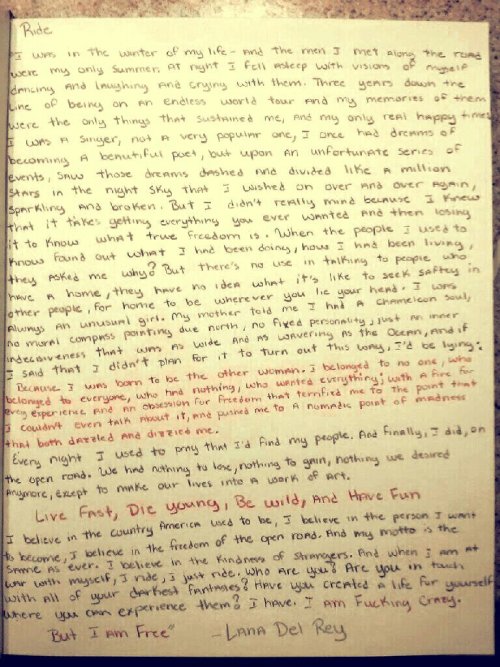 Ride
I was in the winter of my life - and the men I met along the road
were my only summer. At night I fell asleep with visions of myself
dancing and laughing and crying with them. Three years down the
line of being on an endless world tour and my memories of them
were the only things that sustained me, and my only real happy times
I was a singer, not a very popular one, I once had dreams of
becoming a beautiful poet, but upon an unfortunate series of
events, saw those dreams dashed and divided like a million
stars in the night sky that I wished on over and over again,
sparkling and broken. But I didn't really mind because I knew
that it takes getting everything you ever wanted and then losing
it to know what true freedom is. When the people I used to
know found out what I had been doing, how I had been living,
they asked me why? But there's no use in talking to people who
have a home, they have no idea what it's like to seek saftey in
other people, for home to be wherever you lie your head. I was
Always an unusual girl. My mother told me I had a chameleon soul,
no moral compass pointing due north, no fixed personality, just an inner
indecisiveness that was as wide and as wavering as the ocean, and if
I said that I didn't plan for it to turn out this way, I'd be lying:
Because I was born to be the other woman. I belonged to no one, who
belonged to everyone, who had nothing, who wanted everything; with a fire for
every experience and an obsession for freedom that terrified me to the point that
I couldn't even talk about it, and pushed me to a nomadic point of madness
that both dazzled and dizzied me.
Every night I used to pray that I'd find my people. And finally, I did, on
the open road. We had nothing to lose, nothing to gain, nothing we desired
anymore, except to make our lives into a work of art.
Live Fast, Die young, Be wild, And Have Fun
I believe in the country America used to be, I believe in the person I want
to become, I believe in the freedom of the open road. And my motto is the
same as ever. I believe in the kindness of strangers. And when I am at
war with myself, I ride, I just ride. Who are you? Are you in touch
with all of your darkest fantases? Have you created a life for yourself
where you can experience them? I have. I am Fucking Crazy.
But I am Free" - Lana Del Rey